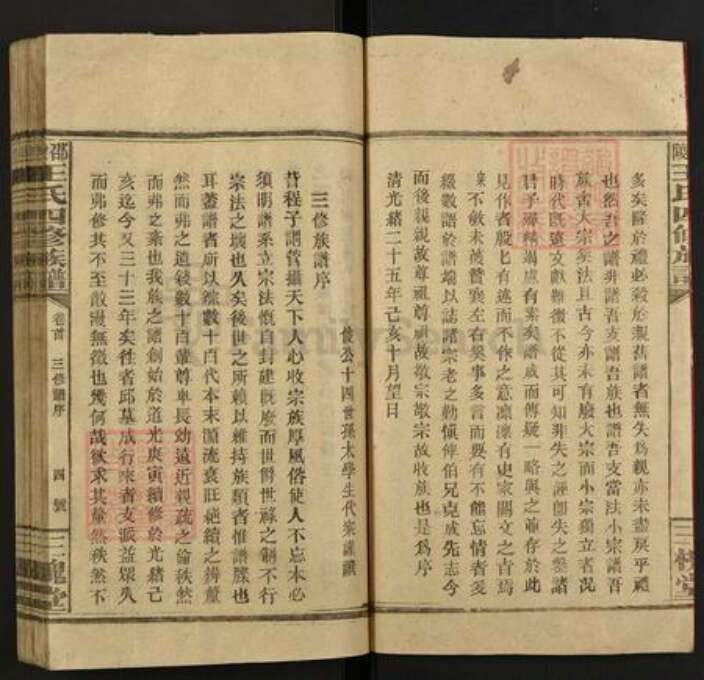 多矣殺於禮必殺於親舊譜者無失為親亦未盡戾乎禮
也然吾之譜非譜吾支譜吾族也譜吾支當法小宗譜吾
族舍大宗奚法且古今亦未有廢大宗而小宗獨立者況
時代既遠文獻難徵不從其可知非失之誣即失之鑿諸
君子殫精竭慮有素矣譜成而傳疑一略與之並存於此
見作者殷匕有述而不作之意凜凜有史家闕文之古焉
不敏未獲贊襄左右奚事多言而要有不能忘情者爰
綴數語於譜端以誌諸宗老之勤慎俾伯兄克成先志今
而後親親故尊祖尊祖故敬宗敬宗故收族也是為序
清光緒二十五年己亥十月望日
三修族譜序
俊公十四世孫太學生代榮謹識
昔程子謂管攝天下人心收宗族厚風俗使人不忘本必
須明譜系立宗法慨自封建既廢而世爵世祿之制不行
宗法之壞也久矣後世之所賴以維持族類者惟譜牒也
耳蓋譜者所以綜數十百代本末源流衰旺絕續之辨釐
然而弗之遺敘數十百輩尊卑長幼遠近親疏之倫秩然
而弗之紊也我族之譜創始於道光庚寅續修於光緒己
亥迄今又三十三年矣徃者邱墓成行來者支派益眾久
而弗修其不至散漫無徵也幾何哉欲求其釐然秩然不
陵王氏四修族譜
三槐堂
邵王氏四修族譜
卷首 三修譜序
四號
三槐堂